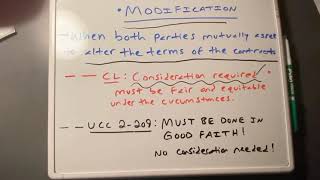 • MODIFICATION
- When both parties mutually assent
to alter the terms of the contracts
-- CL: Consideration required
must be fair and equitable
under the circumstances.
-- UCC 2-209: MUST BE DONE IN
GOOD FAITH!
NO consideration needed!